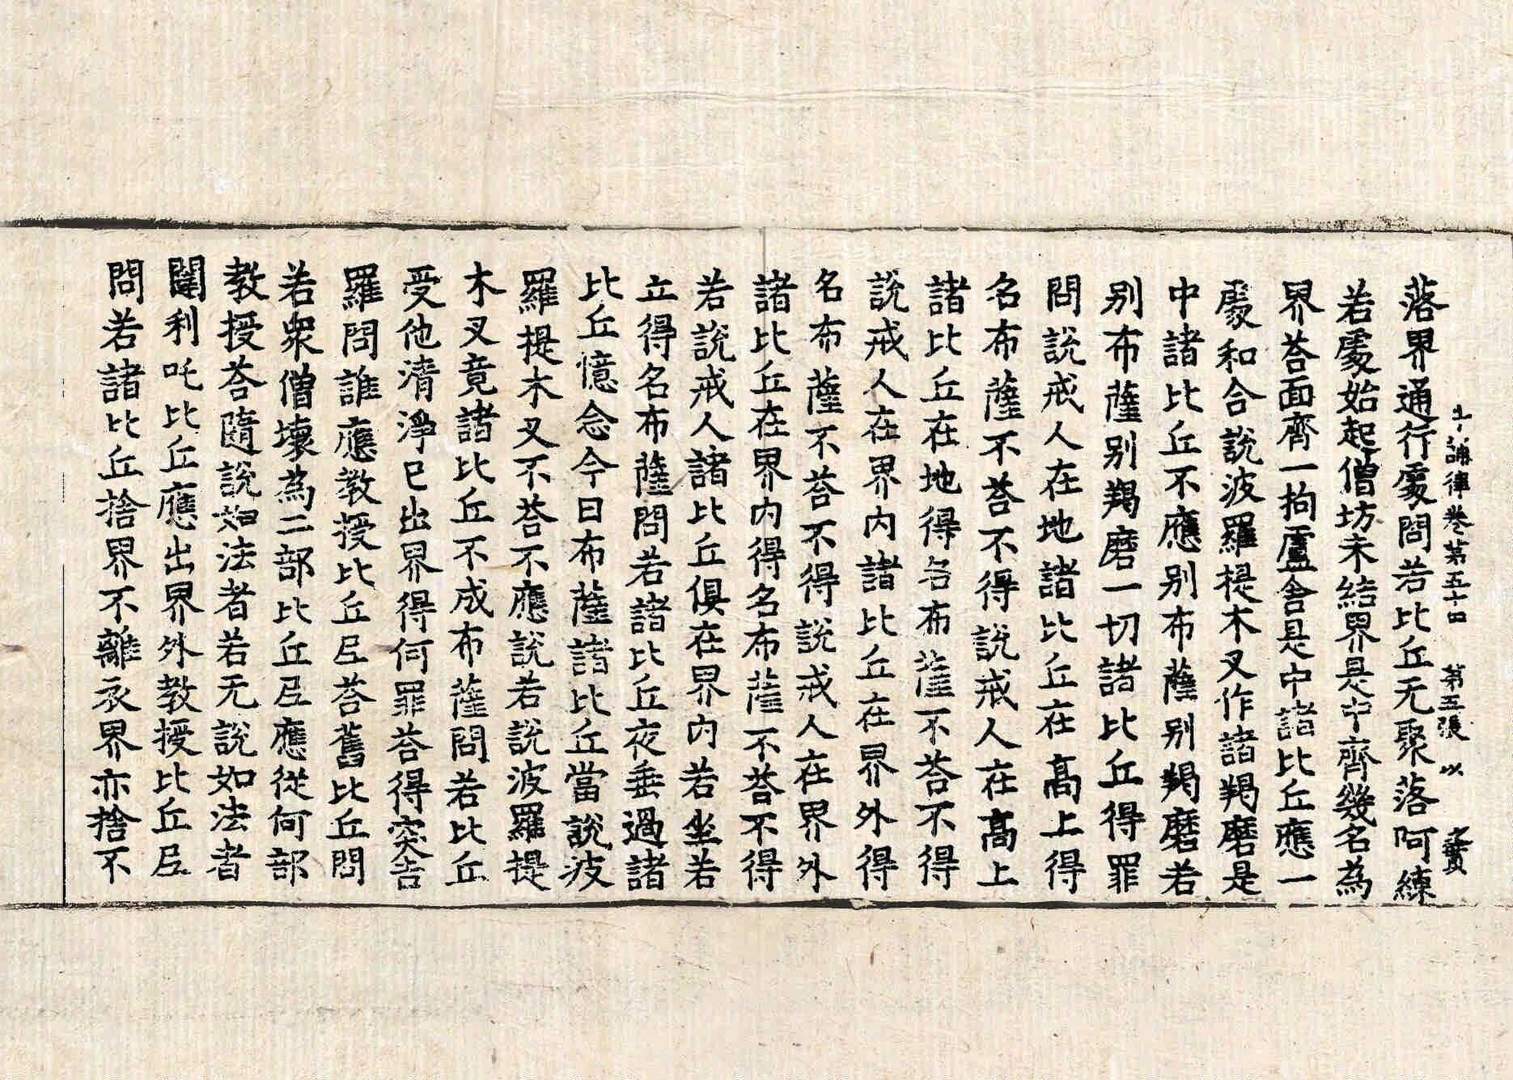 十誦律卷第五十四　第五張　以
落界通行處問若比丘无聚落阿練
若處始起僧坊未結界是中齊幾名為
界荅面齊一拘盧舍是中諸比丘應一
處和合說波羅提木叉作諸羯磨是
中諸比丘不應別布薩別羯磨若
別布薩別羯磨一切諸比丘得罪
問說戒人在地諸比丘在高上得
名布薩不荅不得說戒人在高上
諸比丘在地得名布薩不荅不得
說戒人在界內諸比丘在界外得
名布薩不荅不得說戒人在界外
諸比丘在界內得名布薩不荅不得
若說戒人諸比丘俱在界內若坐若
立得名布薩問若諸比丘夜垂過諸
比丘憶念今日布薩諸比丘當說波
羅提木叉不荅不應說若說波羅提
木叉竟諸比丘不成布薩問若比丘
受他清淨已出界得何罪荅得突吉
羅問誰應教授比丘尼荅舊比丘問
若眾僧壞為二部比丘尼應從何部
教授荅隨說如法者若无說如法者
闥利吒比丘應出界外教授比丘尼
問若諸比丘捨界不離衣界亦捨不